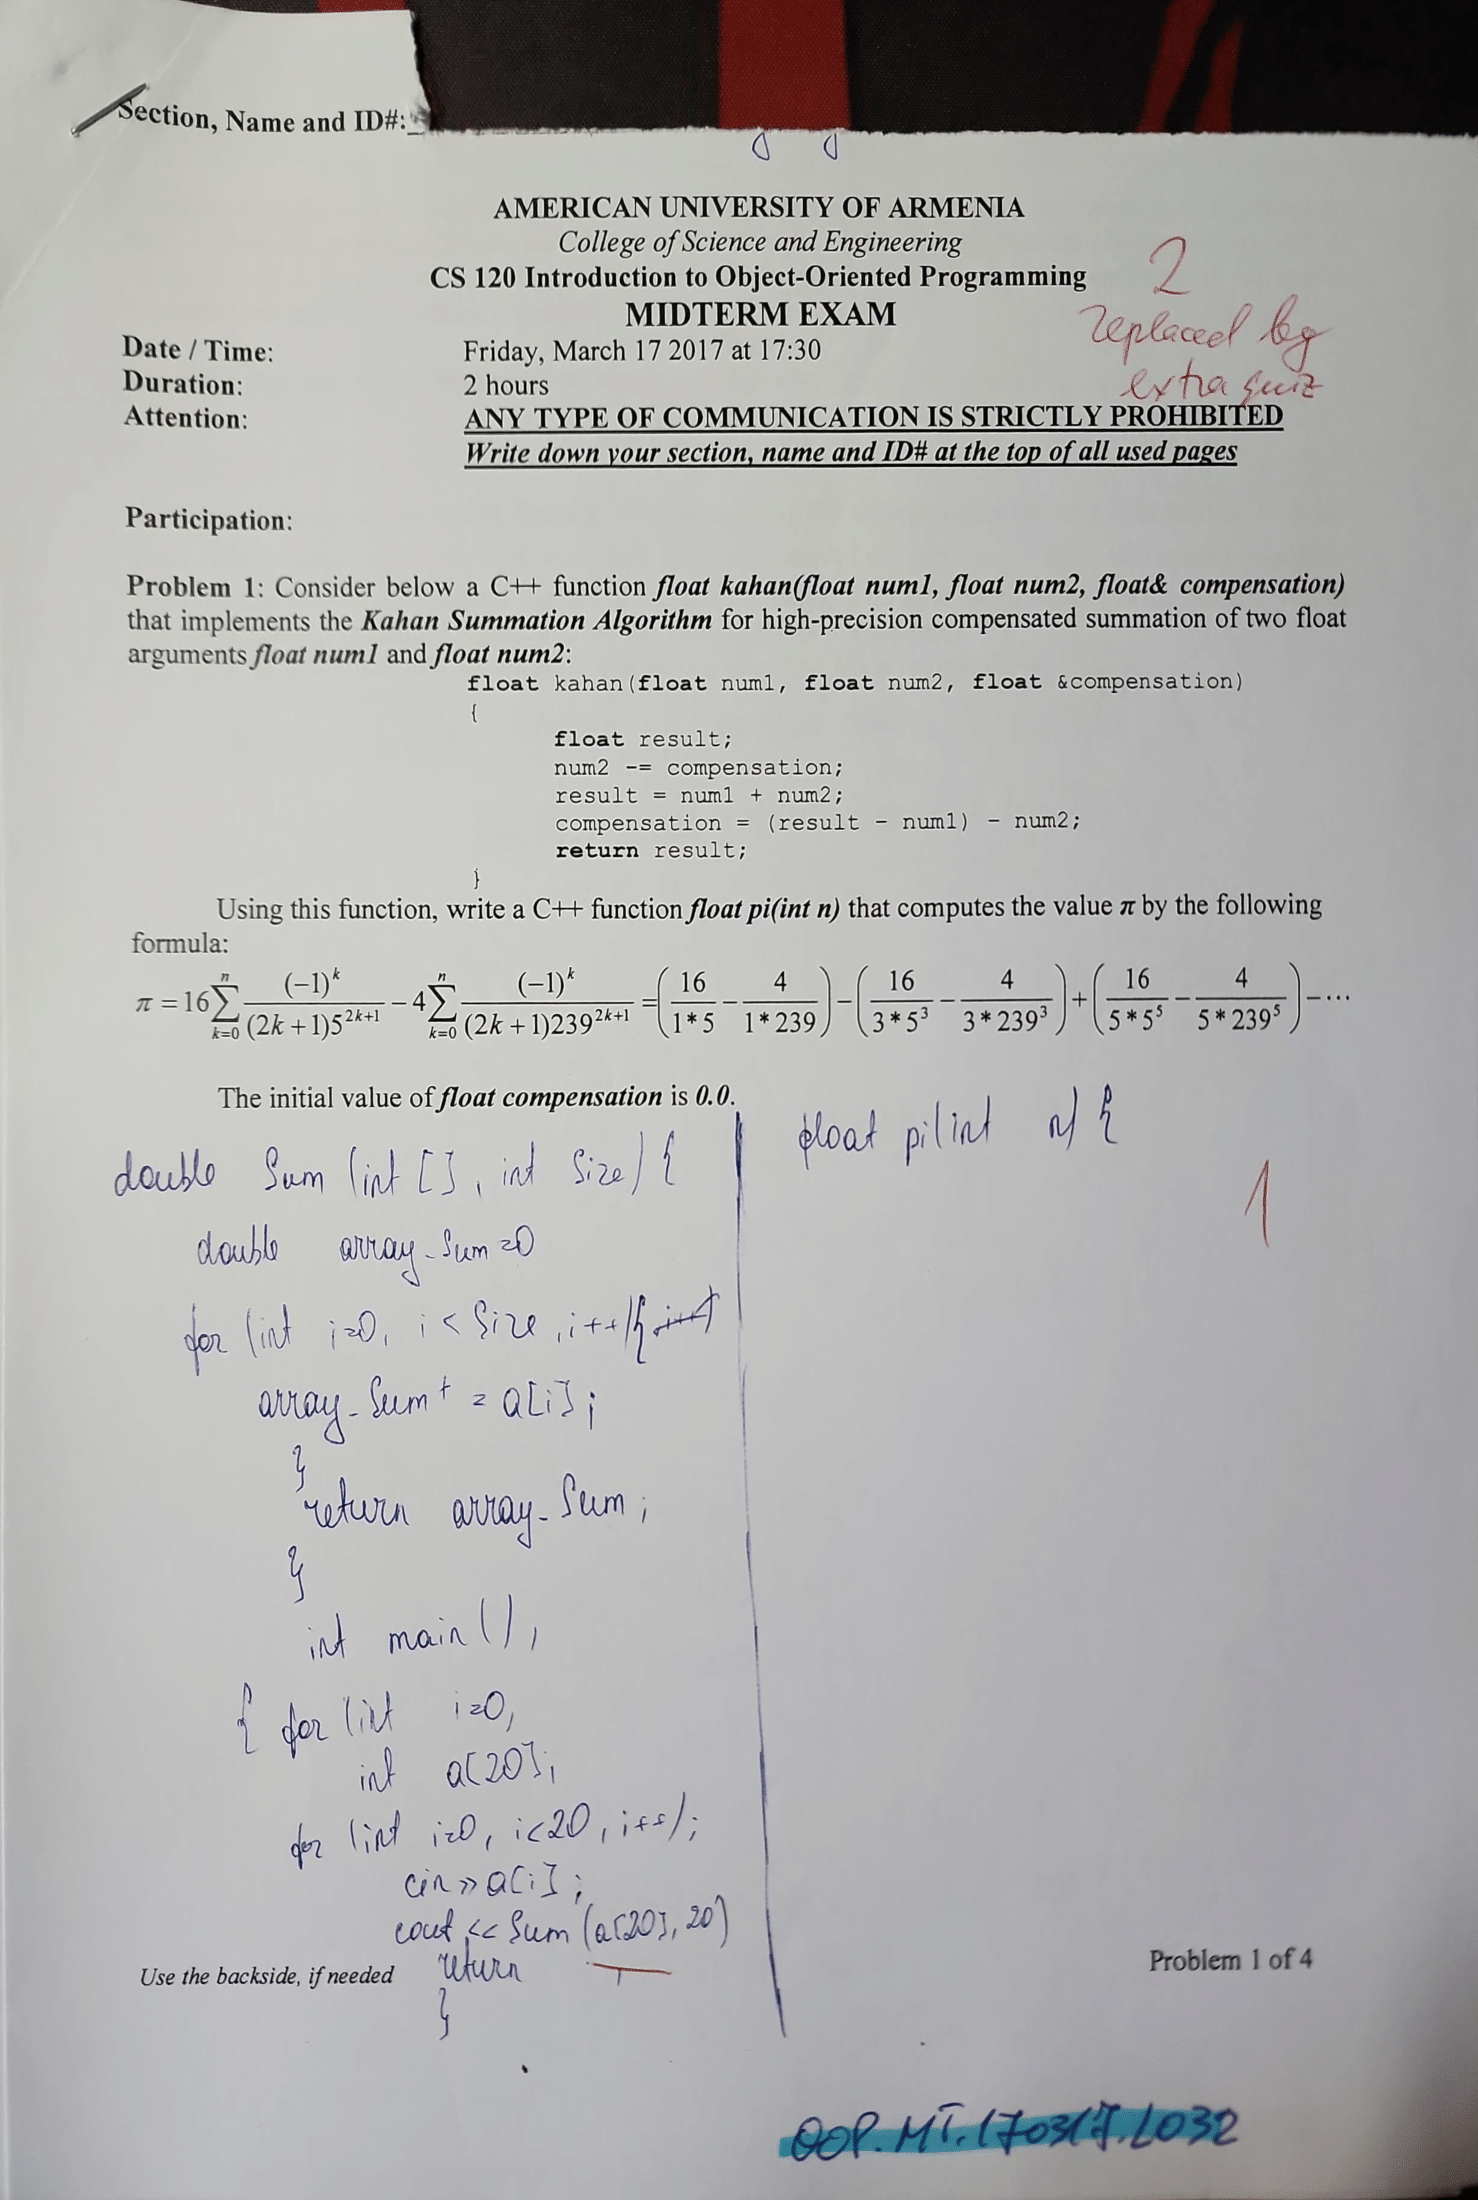 Section, Name and ID#:
AMERICAN UNIVERSITY OF ARMENIA
College of Science and Engineering
CS 120 Introduction to Object-Oriented Programming
MIDTERM EXAM
2
replaced by
extra quiz
Date / Time: Friday, March 17 2017 at 17:30
Duration: 2 hours
Attention: ANY TYPE OF COMMUNICATION IS STRICTLY PROHIBITED
Write down your section, name and ID# at the top of all used pages
Participation:
Problem 1: Consider below a C++ function float kahan(float num1, float num2, float& compensation)
that implements the Kahan Summation Algorithm for high-precision compensated summation of two float
arguments float num1 and float num2:
float kahan(float num1, float num2, float &compensation)
{
float result;
num2 -= compensation;
result = num1 + num2;
compensation = (result - num1) - num2;
return result;
}
Using this function, write a C++ function float pi(int n) that computes the value π by the following
formula:
π = 16 ∑_{k=0}^{n} (-1)^k / ((2k+1)5^{2k+1}) − 4 ∑_{k=0}^{n} (-1)^k / ((2k+1)239^{2k+1}) = (16/(1*5) − 4/(1*239)) − (16/(3*5^3) − 4/(3*239^3)) + (16/(5*5^5) − 4/(5*239^5)) − ⋯
The initial value of float compensation is 0.0.
double Sum (int [], int Size) {
double array_Sum=0
for (int i=0, i < Size, i++) {
array_Sum+ = a[i];
}
return array_Sum;
}
int main(),
{ for (int i=0,
int a[20];
for (int i=0, i<20, i++);
cin >> a[i];
cout << Sum (a[20], 20)
return
}
float pi(int n) {
1
Use the backside, if needed
Problem 1 of 4
OOP.MT.170317.L032